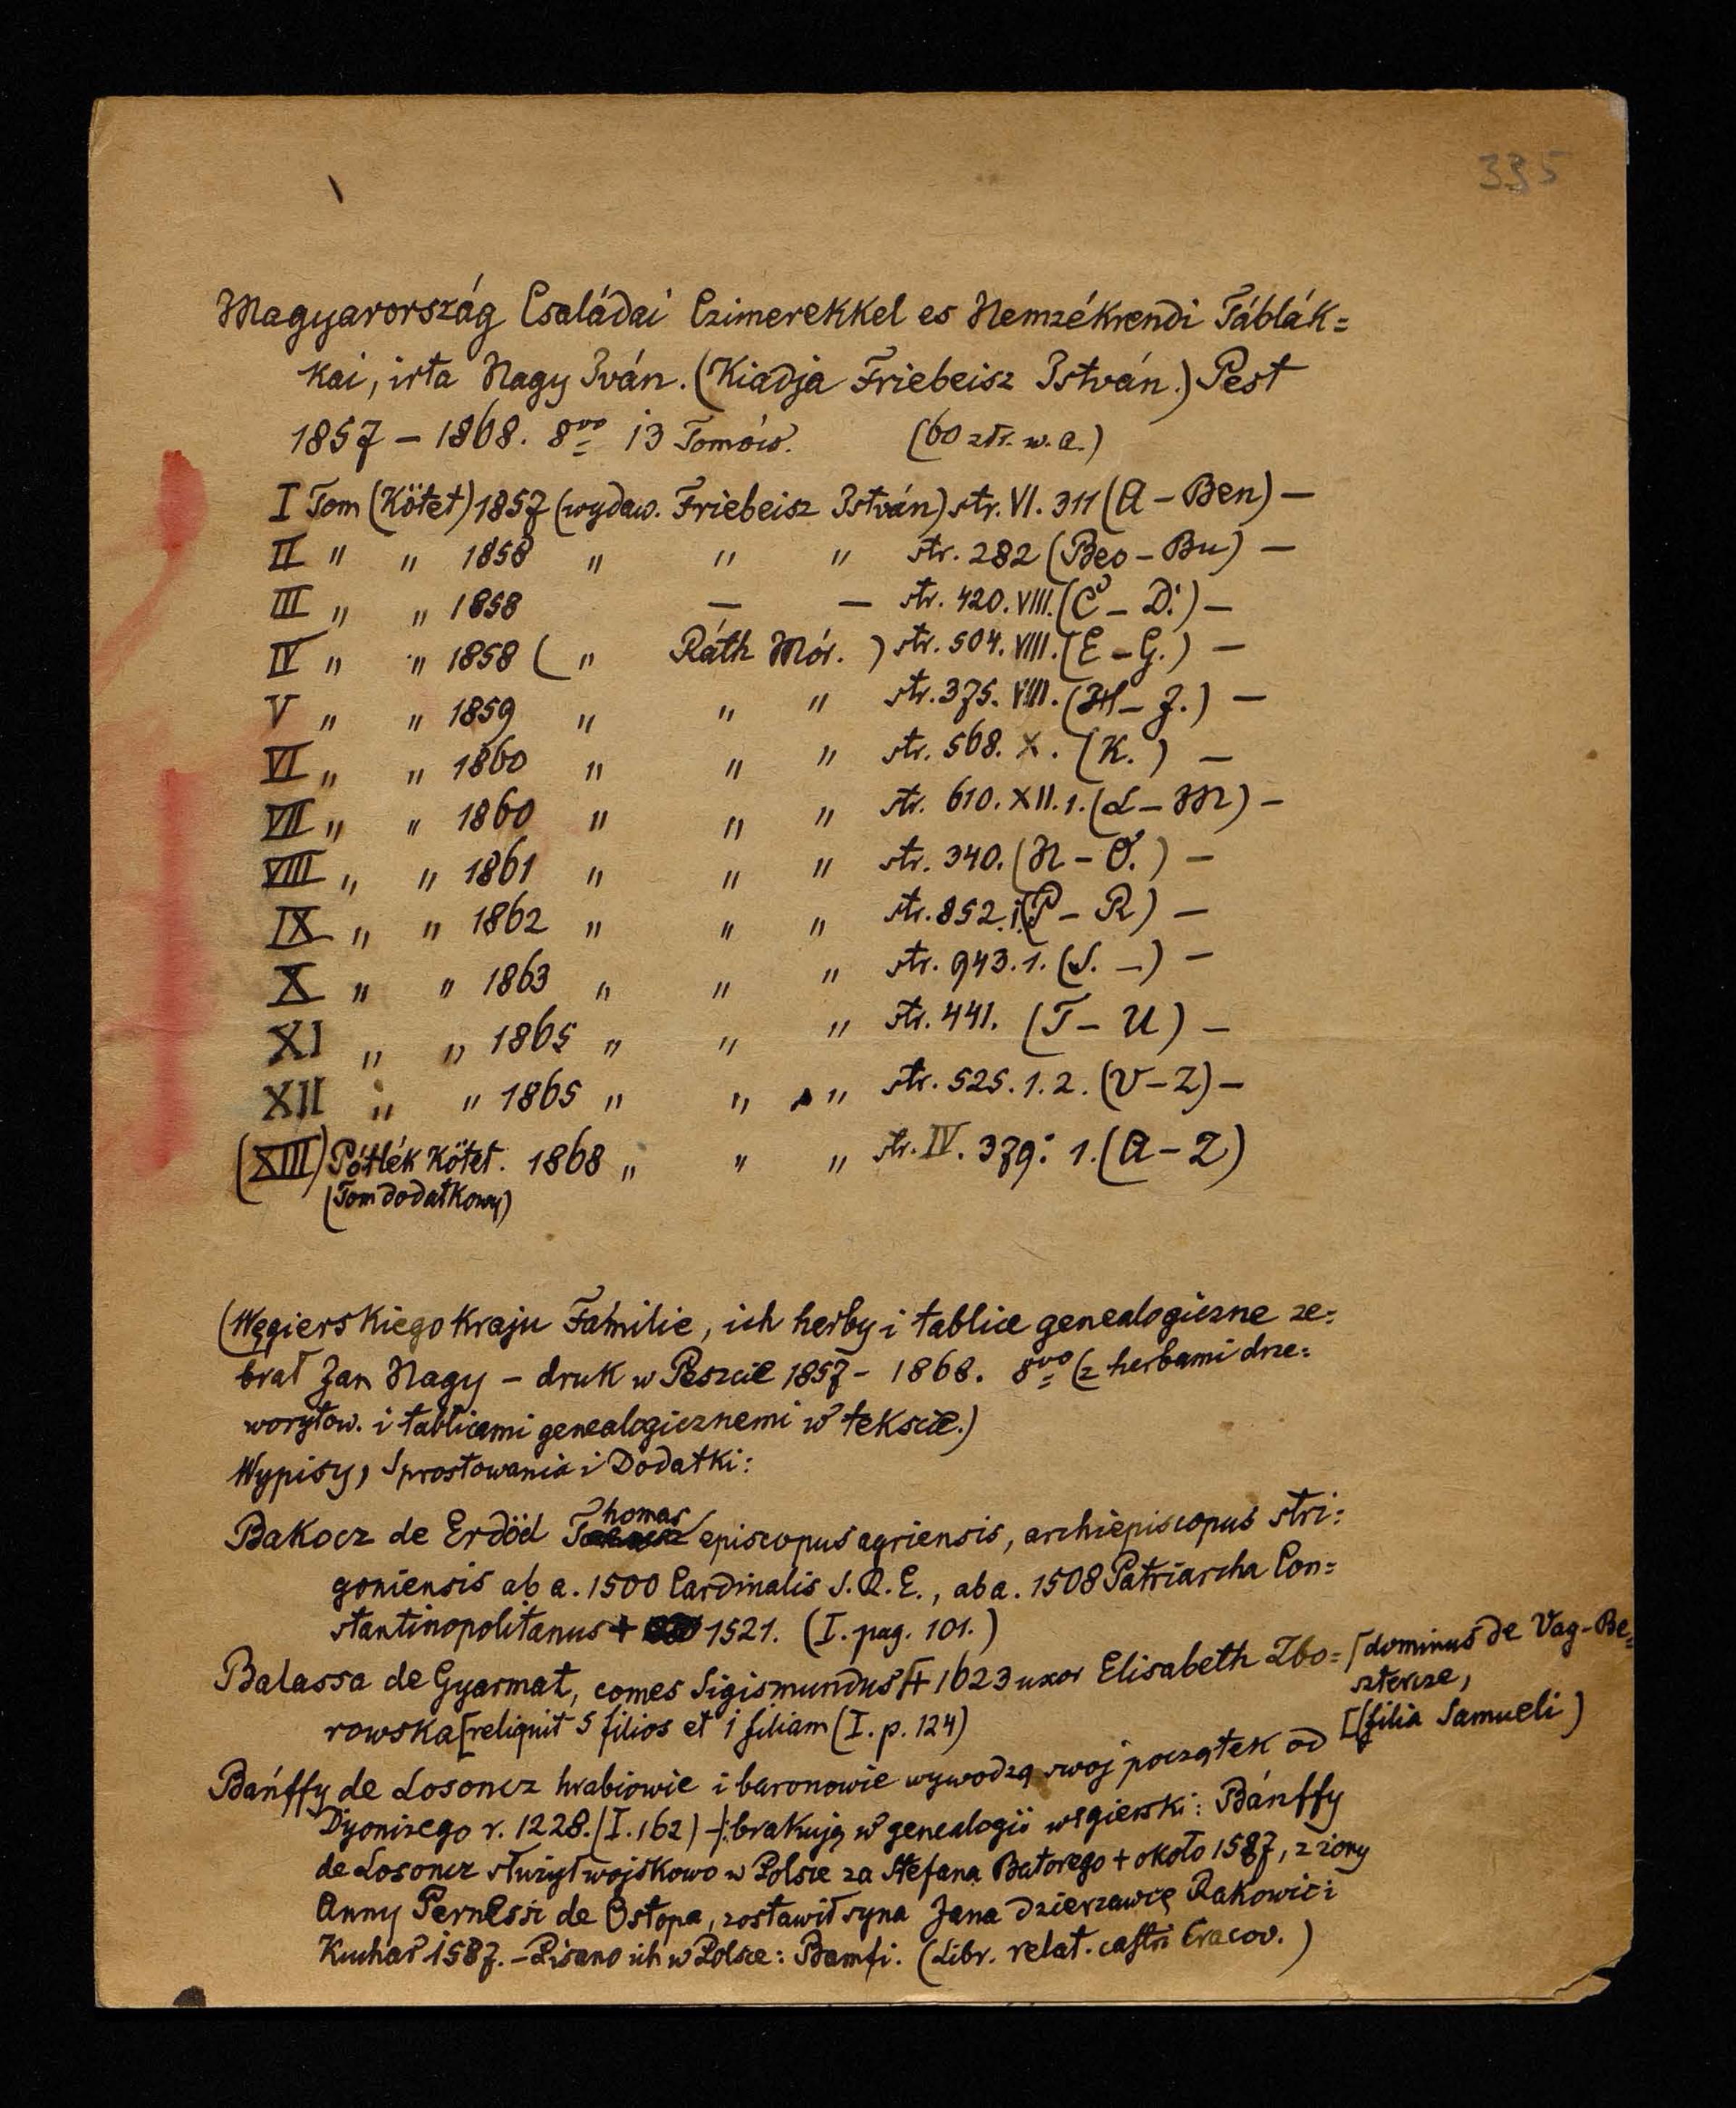 335
Magyarország Családai Czimerekkel es Nemzékrendi Táblák=
kai, irta Nagy Iván. (Kiadja Friebeisz István.) Pest
1857 – 1868. 8vo 13 Tomów. (60 złr. w. a.)
I Tom (Kötet) 1857 (wydaw. Friebeisz István) str. VI. 311 (A – Ben) –
II " " 1858 " " " str. 282 (Beo – Bu) –
III " " 1858 – – str. 420. VIII. (C – D.) –
IV " " 1858 ( " Ráth Mór. ) str. 504. VIII. (E – G.) –
V " " 1859 " " " str. 375. VIII. (H – J.) –
VI " " 1860 " " " str. 568. X. (K.) –
VII " " 1860 " " " str. 610. XII. 1. (L – M) –
VIII " " 1861 " " " str. 340. (N – O.) –
IX " " 1862 " " " str. 852. 1. (P – R) –
X " " 1863 " " " str. 943. 1. (S. –) –
XI " " 1865 " " " str. 441. (T – U) –
XII " " 1865 " " " str. 525. 1. 2. (V – Z) –
(XIII) Pótlék Kötet. 1868 " " " str. IV. 379. 1. (A – Z)
(Tom dodatkowy)
(Węgierskiego Kraju Familie, ich herby i tablice genealogiczne ze=
brał Jan Nagy – druk w Peszcie 1857 – 1868. 8vo (z herbami drze=
worytow. i tablicami genealogicznemi w tekscie.)
Wypisy, Sprostowania i Dodatki:
Bakocz de Erdöd Thomas episcopus agriensis, archiepiscopus stri=
goniensis ab a. 1500 Cardinalis S. R. E., ab a. 1508 Patriarcha Con=
stantinopolitanus + 1521. (I. pag. 101.)
Balassa de Gyarmat, comes Sigismundus [+ 1623 uxor Elisabeth Zbo= [dominus de Vag-Be=
szterze,
rowska [reliquit 5 filios et 1 filiam (I. p. 124) [(filia Samueli)
Bánffy de Losoncz hrabiowie i baronowie wywodzą swoj początek od
Dyonizego r. 1228. (I. 162) –/: brakują w genealogii węgierski: Bánffy
de Losoncz służył wojskowo w Polsce za Stefana Batorego + około 1587, z żony
Anny Pernessi de Ostopa, zostawił syna Jana dzierzawcę Rakowic i
Kuchar 1587. – Pisano ich w Polsce: Bamfi. (Libr. relat. castri Cracov.)